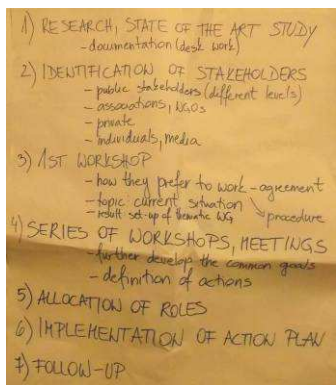 1) RESEARCH, STATE OF THE ART STUDY
- documentation (desk work)
2) IDENTIFICATION OF STAKEHOLDERS
- public stakeholders (different levels)
- associations, NGOs
- private
- individuals, media
3) 1ST WORKSHOP
- how they prefer to work - agreement
- topic: current situation
procedure
- result set-up of thematic WG
4) SERIES OF WORKSHOPS, MEETINGS
- further develop the common goals
- definition of actions
5) ALLOCATION OF ROLES
6) IMPLEMENTATION OF ACTION PLAN
7) FOLLOW-UP